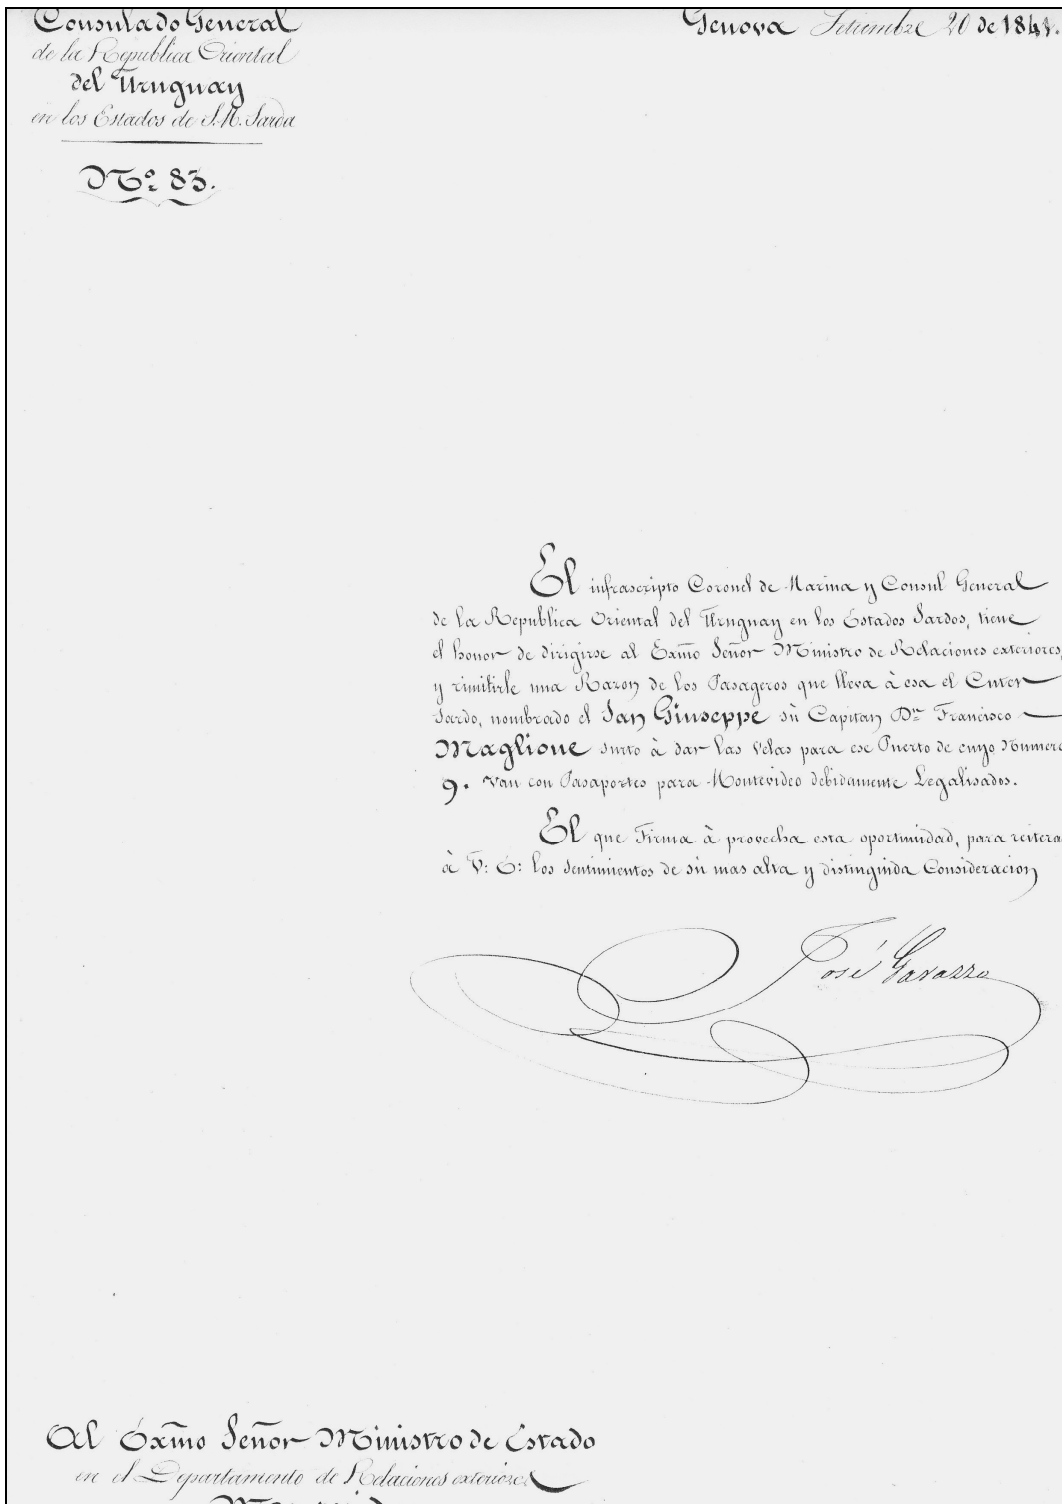 Consulado General
de la Republica Oriental
del Uruguay
en los Estados de S. M. Sarda
Nº 83.
Genova Setiembre 20 de 1841.
El infrascripto Coronel de Marina y Consul General
de la Republica Oriental del Uruguay en los Estados Sardos, tiene
el honor de dirigirse al Exm̃o Señor Ministro de Relaciones exteriores,
y rimitirle una Razon de los Pasageros que lleva à esa el Cuter
Sardo, nombrado el San Giuseppe sù Capitan Dn. Francisco
Maglione surto à dar las velas para ese Puerto de cuyo Numero
9. van con Pasaportes para Montevideo debidamente Legalisados.
El que Firma à provecha esta oportunidad, para reitera
à V: E: los sentimientos de sù mas alta y distinguida Consideracion
José Gavazzo
Al Exm̃o Señor Ministro de Estado
en el Departamento de Relaciones exteriores